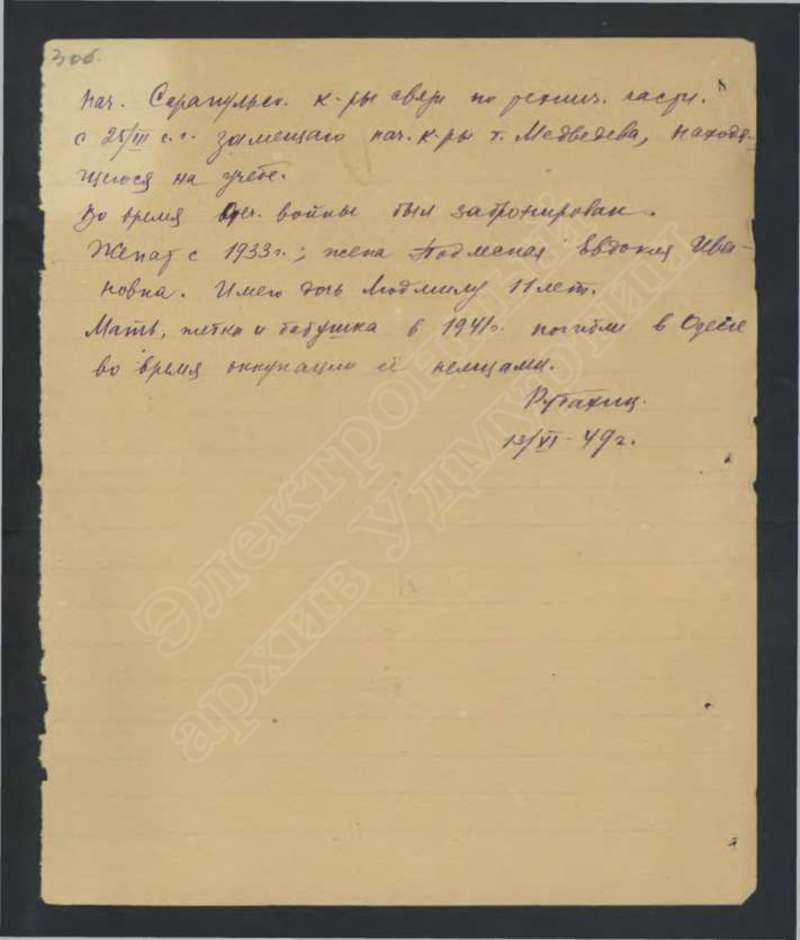 3 об.
нач. Сарапульск. к-ры связи по технич. части.
с 25/III с.г. замещаю нач. к-ры т. Медведева, находя-
щегося на учебе.
Во время Отеч. войны был забронирован.
Женат с 1933 г.; жена Подлесная Евдокия Ива-
новна. Имею дочь Людмилу 11 лет.
Мать, тетка и бабушка в 1941 г. погибли в Одессе
во время оккупации её немцами.
13/VI-49 г.
Электронный
архив Удмуртии